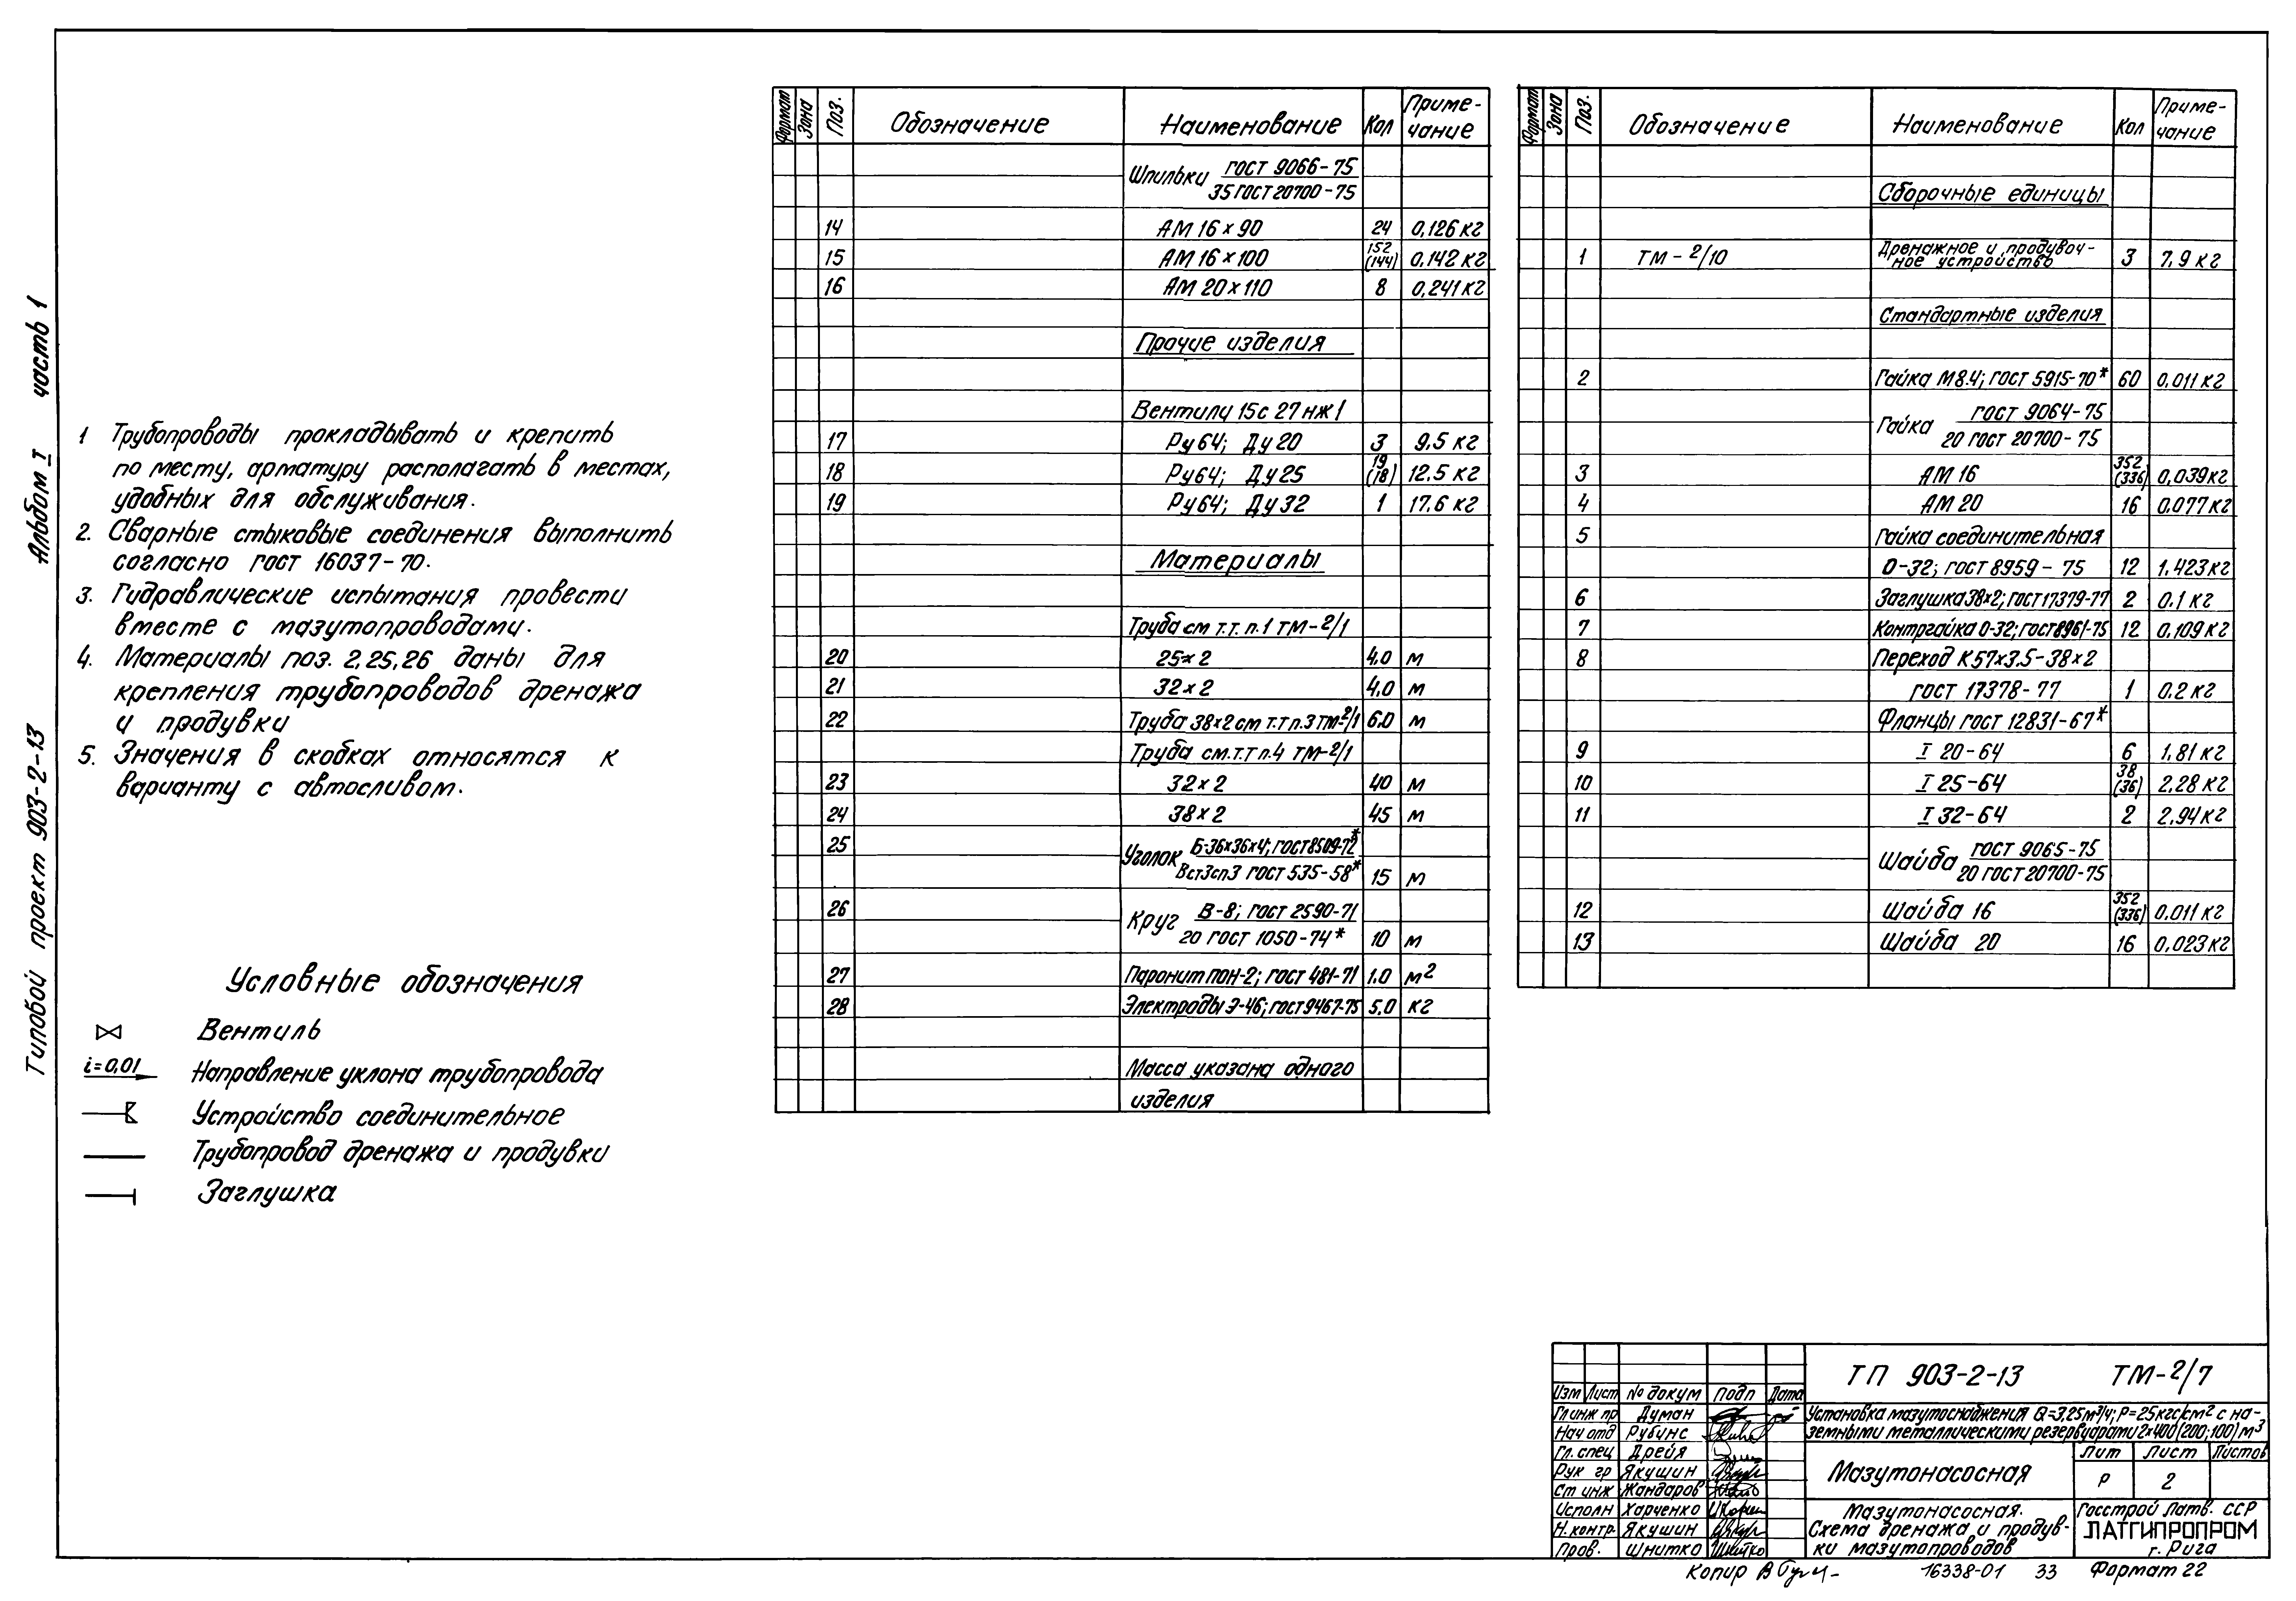 Типовой проект 903-2-13 Альбом I часть 1
1 Трубопроводы прокладывать и крепить
по месту, арматуру располагать в местах,
удобных для обслуживания.
2. Сварные стыковые соединения выполнить
согласно ГОСТ 16037-70.
3. Гидравлические испытания провести
вместе с мазутопроводами.
4. Материалы поз. 2,25,26 даны для
крепления трубопроводов дренажа
и продувки
5. Значения в скобках относятся к
варианту с автосливом.
Условные обозначения
Вентиль
i=0,01 Направление уклона трубопровода
Устройство соединительное
Трубопровод дренажа и продувки
Заглушка
Формат Зона Поз. Обозначение Наименование Кол Приме-
чание
Шпильки ГОСТ 9066-75
35 ГОСТ 20700-75
14 АМ 16 х 90 24 0,126 кг
15 АМ 16 х 100 152 (144) 0,142 кг
16 АМ 20 х 110 8 0,241 кг
Прочие изделия
Вентили 15с 27 нж 1
17 Ру 64; Ду 20 3 9,5 кг
18 Ру 64; Ду 25 19 (18) 12,5 кг
19 Ру 64; Ду 32 1 17,6 кг
Материалы
Труба см т.т. п.1 ТМ-2/1
20 25х2 4,0 м
21 32х2 4,0 м
22 Труба 38х2 см т.т п.3 ТМ-2/1 6.0 м
Труба см.т.т п.4 ТМ-2/1
23 32х2 40 м
24 38х2 45 м
25 Уголок Б-36х36х4; ГОСТ 8509-72*
Вст3сп3 ГОСТ 535-58* 15 м
26 Круг В-8; ГОСТ 2590-71
20 ГОСТ 1050-74* 10 м
27 Паронит ПОН-2; ГОСТ 481-71 1.0 м2
28 Электроды Э-46; ГОСТ 9467-75 5,0 кг
Масса указана одного
изделия
Формат Зона Поз. Обозначение Наименование Кол Приме-
чание
Сборочные единицы
1 ТМ-2/10 Дренажное и продувоч-
ное устройство 3 7,9 кг
Стандартные изделия
2 Гайка М8.4; ГОСТ 5915-70* 60 0,011 кг
Гайка ГОСТ 9064-75
20 ГОСТ 20700-75
3 АМ 16 352 (336) 0,039 кг
4 АМ 20 16 0,077 кг
5 Гайка соединительная
О-32; ГОСТ 8959-75 12 1,423 кг
6 Заглушка 38х2; ГОСТ 17379-77 2 0.1 кг
7 Контргайка О-32; ГОСТ 8961-75 12 0,109 кг
8 Переход К 57х3.5-38х2
ГОСТ 17378-77 1 0.2 кг
Фланцы ГОСТ 12831-67*
9 I 20-64 6 1,81 кг
10 I 25-64 38 (36) 2,28 кг
11 I 32-64 2 2,94 кг
Шайба ГОСТ 9065-75
20 ГОСТ 20700-75
12 Шайба 16 352 (336) 0,011 кг
13 Шайба 20 16 0,023 кг
Изм Лист № докум Подп Дата
Гл инж пр Думан
Нач отд Рубинс
Гл. спец Дрейя
Рук гр Якушин
Ст инж Жандаров
Исполн Харченко
Н. контр. Якушин
Пров. Шнитко
ТП 903-2-13 ТМ-2/7
Установка мазутоснабжения Q=3,25м³/ч; Р=25кгс/см² с на-
земными металлическими резервуарами 2х400 (200; 100) м³
Мазутонасосная
Лит Лист Листов
Р 2
Мазутонасосная.
Схема дренажа и продув-
ки мазутопроводов
Госстрой Латв. ССР
ЛАТГИПРОПРОМ
г. Рига
Копир 16338-01 33 Формат 22